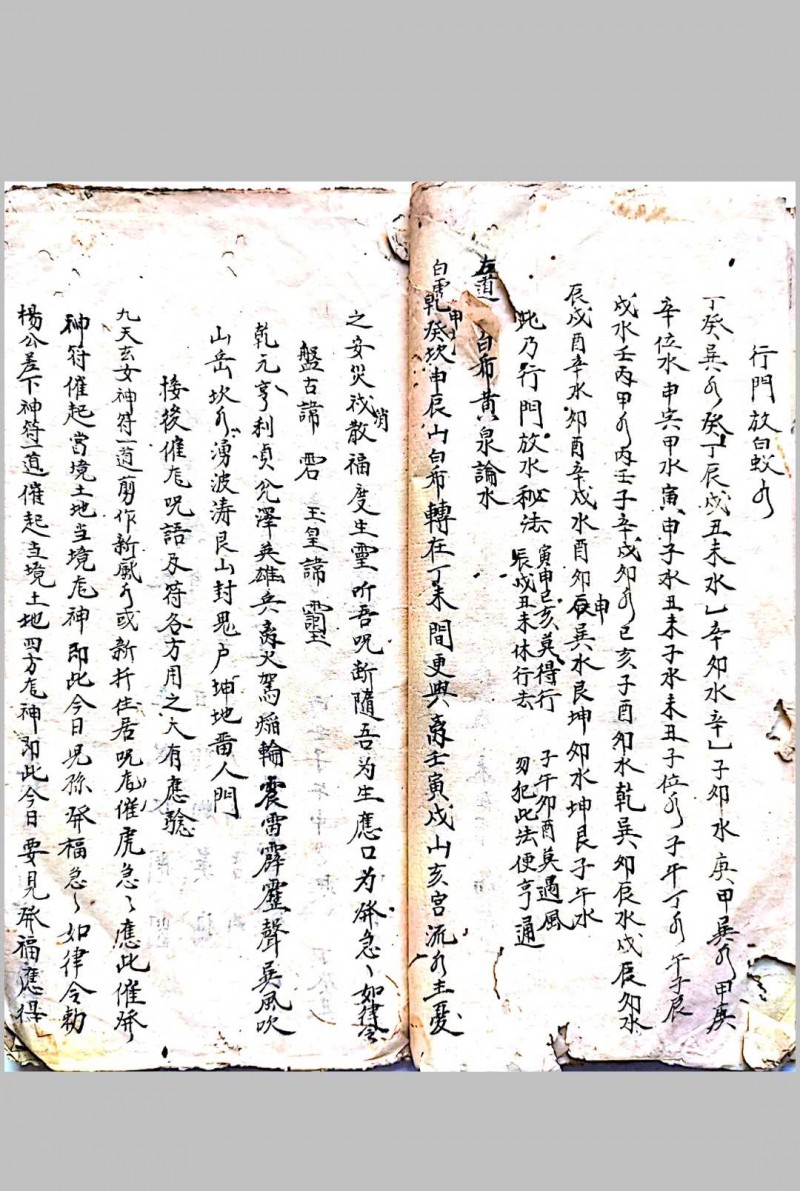 行門放白蚁水
丁癸巽水癸丁辰戌丑未水乙辛卯水辛乙子卯水庚甲巽水甲庚
辛位水申寅甲水寅申子水丑未子水未丑子位水子午丁水午子辰
戌水壬丙甲水丙壬子辛戌卯水巳亥子酉卯水乾巽卯辰水戌辰卯水
辰戌酉辛水卯酉辛戌水酉卯辰申巽水艮坤卯水坤艮子午水
此乃行門放水秘法 寅申巳亥莫得行 子午卯酉莫遇風
辰戌丑未休行去 勿犯此法便亨通
左道 白布黄泉論水
白虎乾癸坎申辰山白布轉在丁未間更與离壬寅戌山亥宮流水主憂
之安災消散福度生靈听吾咒断隨吾为生應口为發急々如律令
盤古諱 玉皇諱
乾元亨利貞兊澤英雄兵离火駕焰輪震雷霹靂聲巽風吹
山岳坎水湧波涛艮山封鬼户坤地畱人門
接後催龙咒語及符各方用之大有應驗
九天玄女神符一道剪作新厰水或新扦住居咒龙催虎急々應此催發
神符催起當境土地当境龙神即此今日見孫發福急々如律令勅
楊公差下神符一道催起当境土地四方龙神即此今日要見發福應得